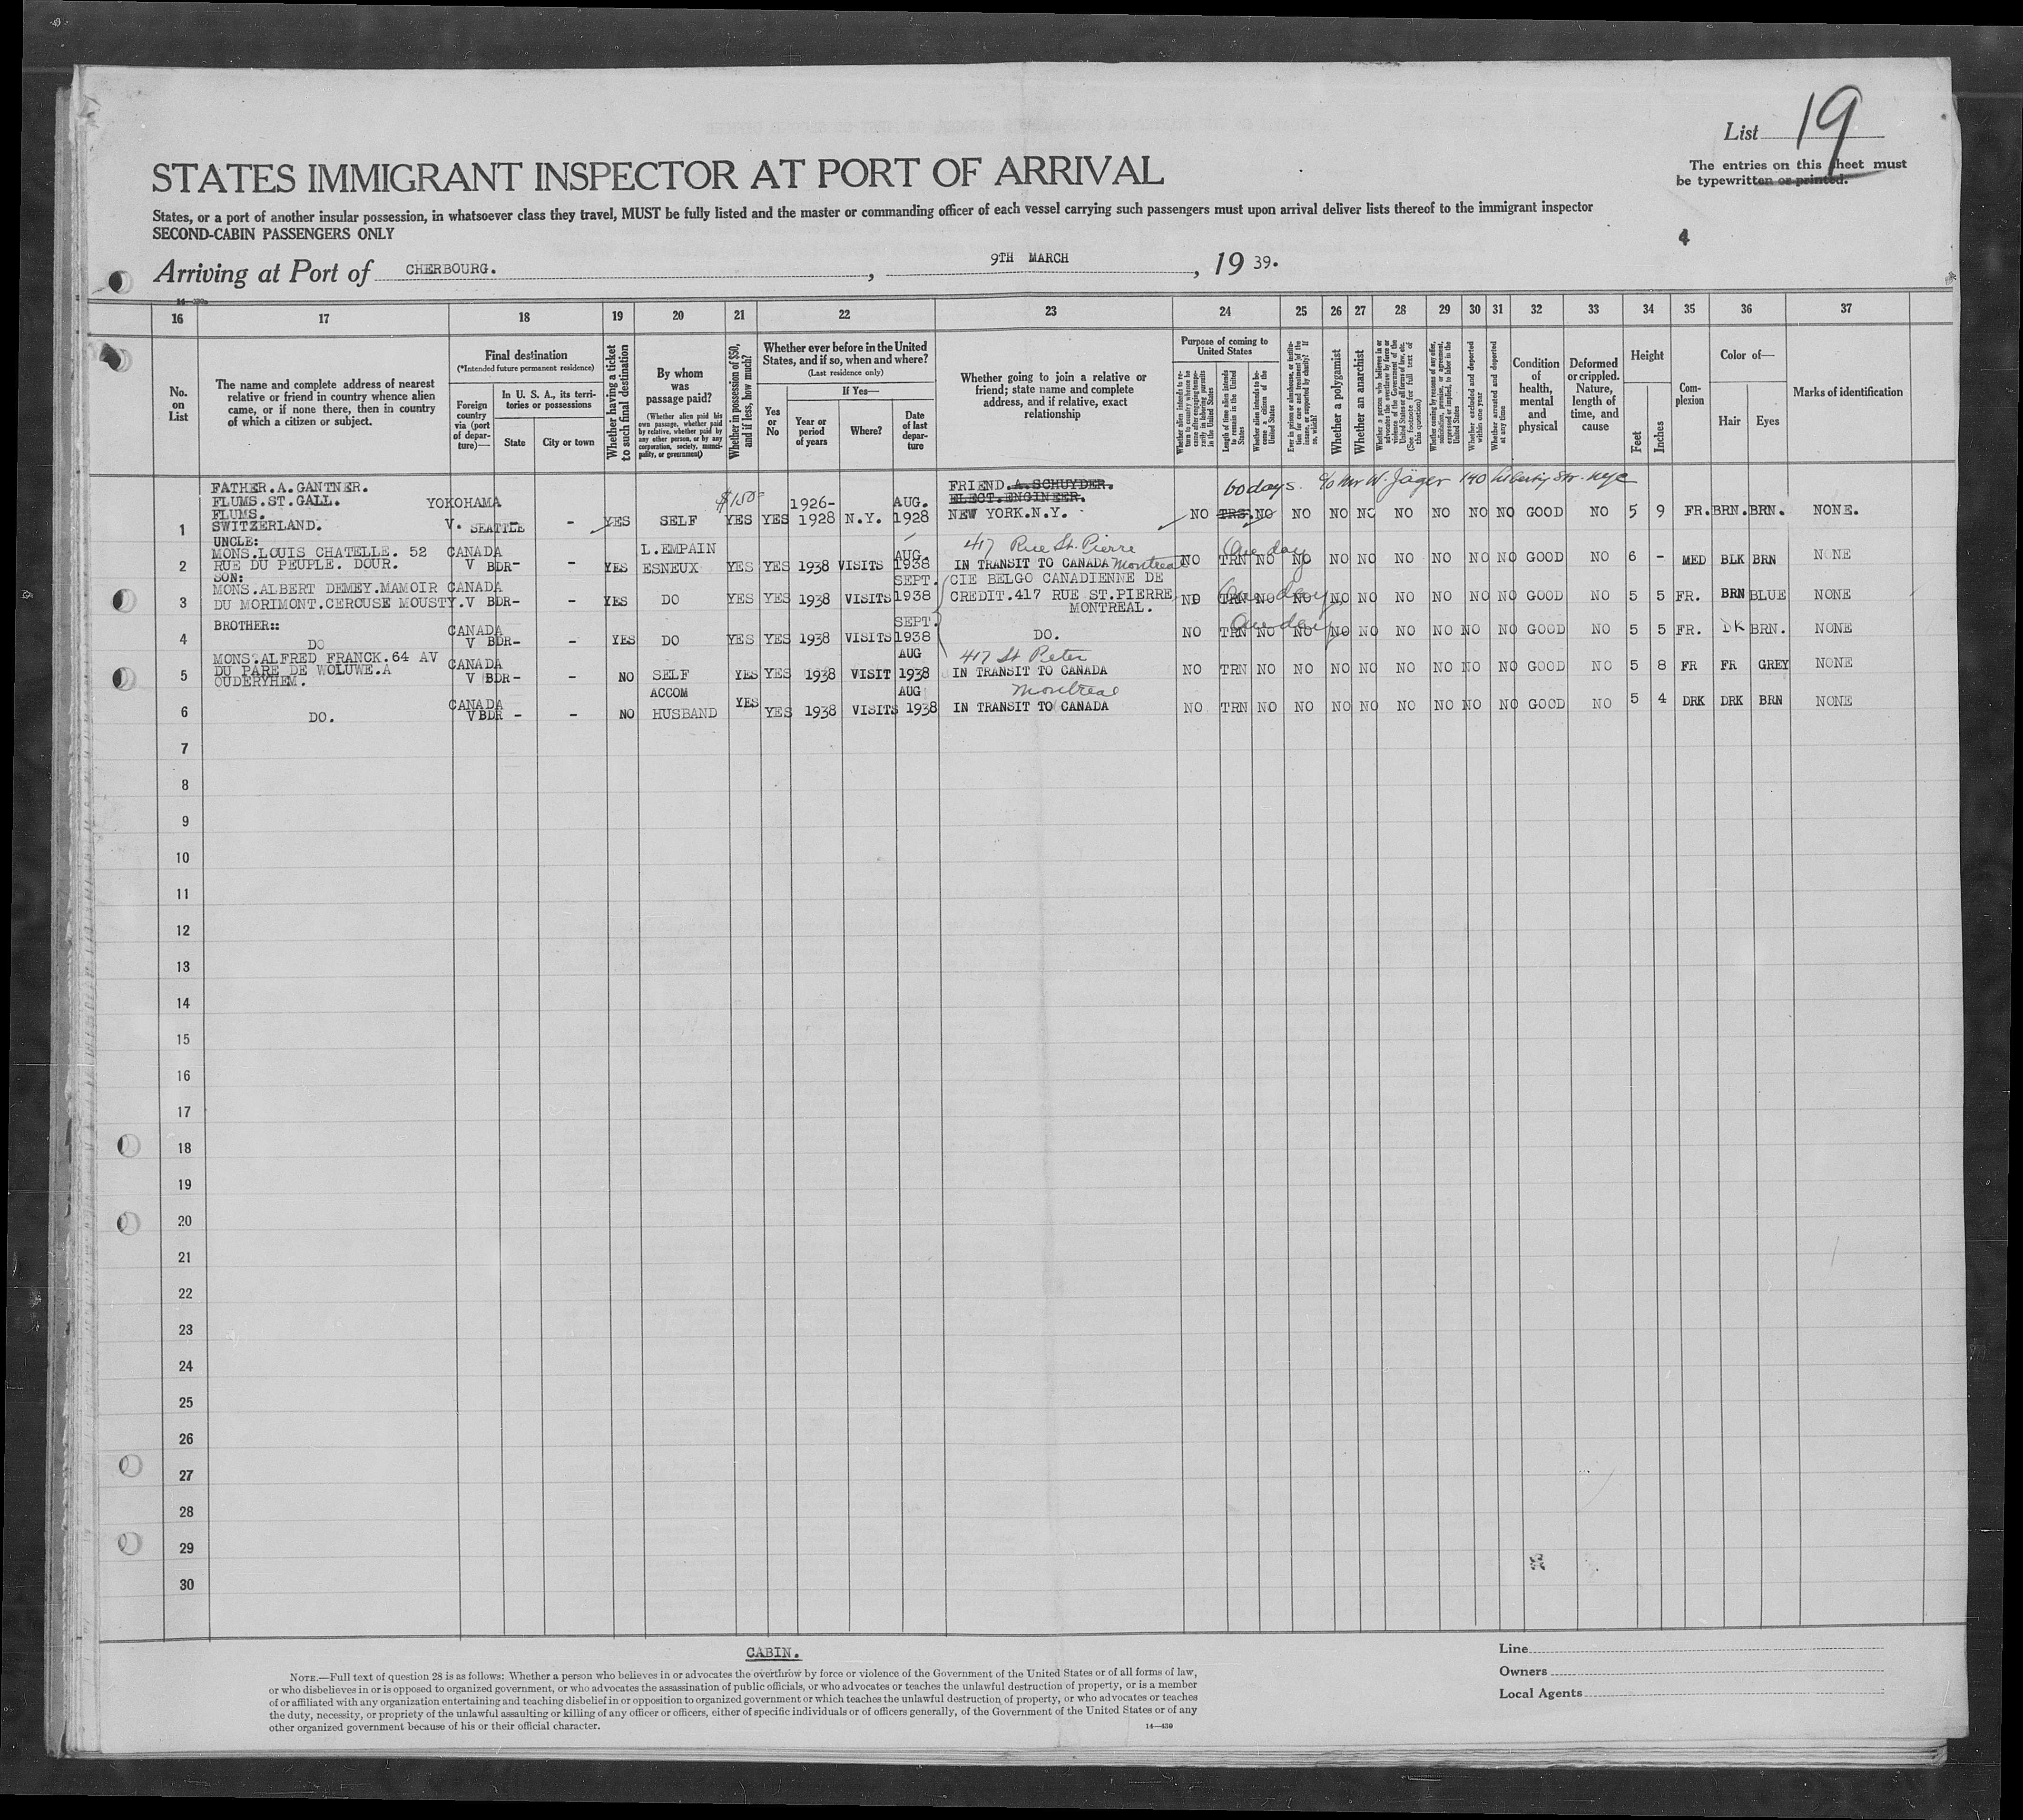 List 19
The entries on this sheet must
be typewritten or printed.
STATES IMMIGRANT INSPECTOR AT PORT OF ARRIVAL
States, or a port of another insular possession, in whatsoever class they travel, MUST be fully listed and the master or commanding officer of each vessel carrying such passengers must upon arrival deliver lists thereof to the immigrant inspector
SECOND-CABIN PASSENGERS ONLY
4
Arriving at Port of CHERBOURG. , 9TH MARCH , 19 39.
16 17 18 19 20 21 22 23 24 25 26 27 28 29 30 31 32 33 34 35 36 37
No. on List
The name and complete address of nearest relative or friend in country whence alien came, or if none there, then in country of which a citizen or subject.
Final destination
(*Intended future permanent residence)
Foreign country via (port of departure)—
In U. S. A., its territories or possessions
State
City or town
Whether having a ticket to such final destination
By whom was passage paid?
(Whether alien paid his own passage, whether paid by relative, whether paid by any other person, or by any corporation, society, municipality, or government)
Whether in possession of $50, and if less, how much?
Whether ever before in the United States, and if so, when and where?
(Last residence only)
Yes or No
If Yes—
Year or period of years
Where?
Date of last departure
Whether going to join a relative or friend; state name and complete address, and if relative, exact relationship
Purpose of coming to United States
Length of time alien intends to remain in the United States
Whether alien intends to become a citizen of the United States
Whether a polygamist
Whether an anarchist
Whether excluded and deported within one year
Whether arrested and deported at any time
Condition of health, mental and physical
Deformed or crippled. Nature, length of time, and cause
Height
Feet
Inches
Complexion
Color of—
Hair
Eyes
Marks of identification
FATHER.A.GANTNER. FRIEND.A.SCHUYDER. 60 days. c/o Mr W. Jäger 140 Liberty Str. nyc
FLUMS.ST.GALL. YOKOHAMA $150 1926- AUG. ELECT.ENGINEER.
FLUMS.
1 SWITZERLAND. V. SEATTLE - YES SELF YES YES 1928 N.Y. 1928 NEW YORK.N.Y. NO TRS. NO NO NO NO NO NO NO NO GOOD NO 5 9 FR. BRN. BRN. NONE.
UNCLE: 417 Rue St. Pierre
MONS.LOUIS CHATELLE. 52 CANADA L.EMPAIN AUG. One day
2 RUE DU PEUPLE. DOUR. V BDR- - YES ESNEUX YES YES 1938 VISITS 1938 IN TRANSIT TO CANADA Montreal NO TRN NO NO NO NO NO NO NO NO GOOD NO 6 - MED BLK BRN NONE
SON: SEPT. CIE BELGO CANADIENNE DE
MONS.ALBERT DEMEY.MAMOIR CANADA One day
3 DU MORIMONT.CEROUSE MOUSTY. V BDR- - YES DO YES YES 1938 VISITS 1938 CREDIT.417 RUE ST.PIERRE MONTREAL. NO TRN NO NO NO NO NO NO NO NO GOOD NO 5 5 FR. BRN BLUE NONE
BROTHER:: CANADA SEPT. One day
4 DO V BDR- - YES DO YES YES 1938 VISITS 1938 DO. NO TRN NO NO NO NO NO NO NO NO GOOD NO 5 5 FR. DK BRN. NONE
MONS.ALFRED FRANCK.64 AV CANADA AUG 417 St Peter
DU PARE DE WOLUWE.A
5 OUDERYHEM. V BDR- - NO SELF YES YES 1938 VISIT 1938 IN TRANSIT TO CANADA NO TRN NO NO NO NO NO NO NO NO GOOD NO 5 8 FR FR GREY NONE
CANADA ACCOM AUG Montreal
6 DO. V BDR - - NO HUSBAND YES YES 1938 VISITS 1938 IN TRANSIT TO CANADA NO TRN NO NO NO NO NO NO NO NO GOOD NO 5 4 DRK DRK BRN NONE
7
8
9
10
11
12
13
14
15
16
17
18
19
20
21
22
23
24
25
26
27
28
29
30
CABIN.
NOTE.—Full text of question 28 is as follows: Whether a person who believes in or advocates the overthrow by force or violence of the Government of the United States or of all forms of law,
or who disbelieves in or is opposed to organized government, or who advocates the assassination of public officials, or who advocates or teaches the unlawful destruction of property, or is a member
of or affiliated with any organization entertaining and teaching disbelief in or opposition to organized government or which teaches the unlawful destruction of property, or who advocates or teaches
the duty, necessity, or propriety of the unlawful assaulting or killing of any officer or officers, either of specific individuals or of officers generally, of the Government of the United States or of any
other organized government because of his or their official character.
14—430
Line
Owners
Local Agents